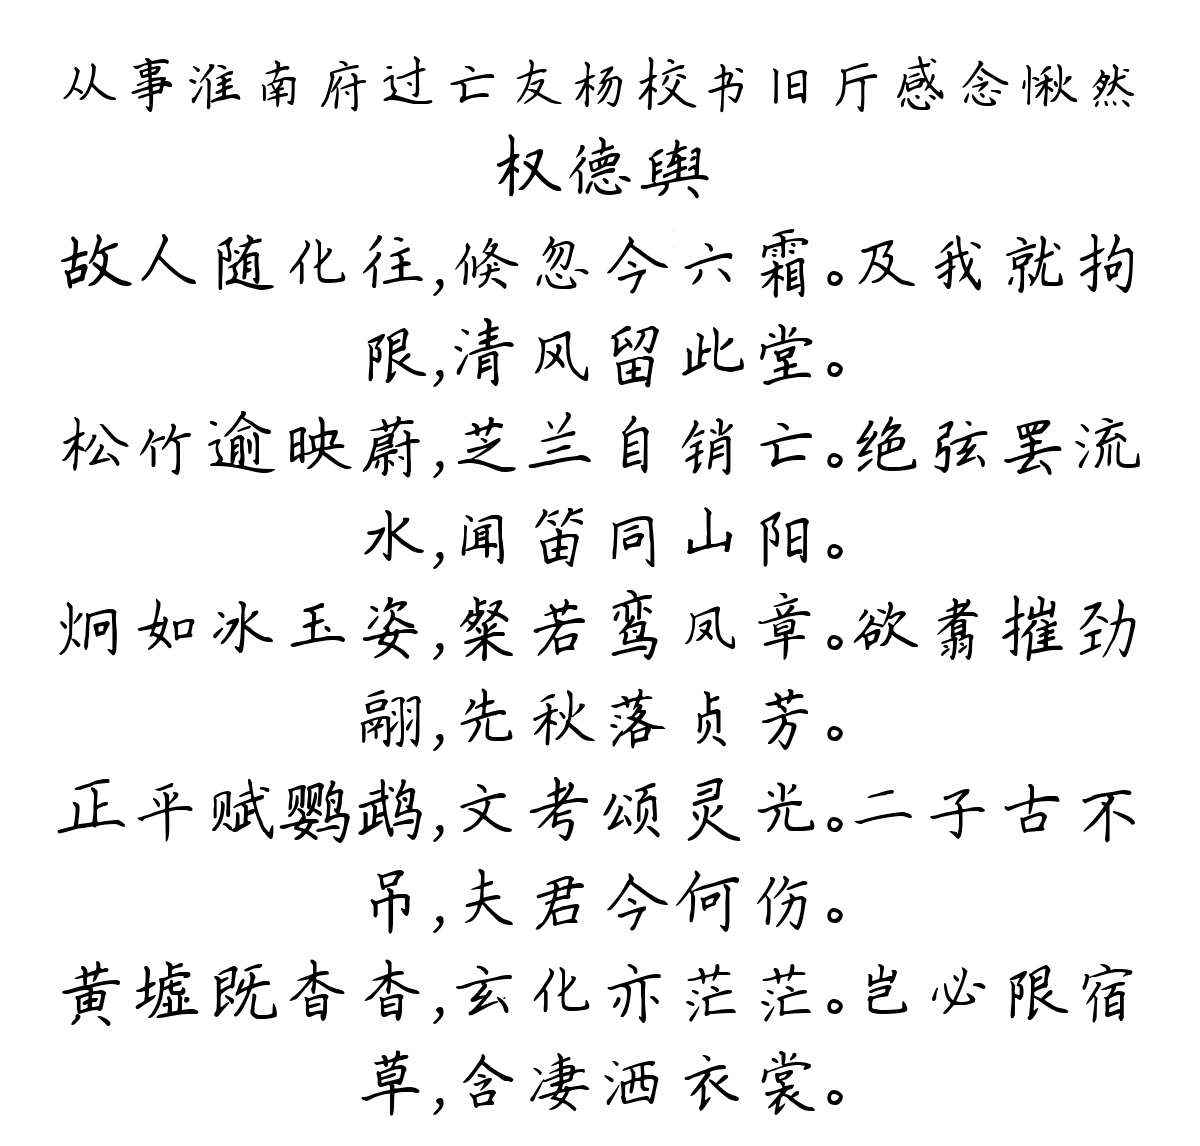 从事淮南府过亡友杨校书旧厅感念愀然
权德舆
故人随化往,倏忽今六霜。及我就拘
限,清风留此堂。
松竹逾映蔚,芝兰自销亡。绝弦罢流
水,闻笛同山阳。
炯如冰玉姿,粲若鸾凤章。欲翥摧劲
翮,先秋落贞芳。
正平赋鹦鹉,文考颂灵光。二子古不
吊,夫君今何伤。
黄墟既杳杳,玄化亦茫茫。岂必限宿
草,含凄洒衣裳。